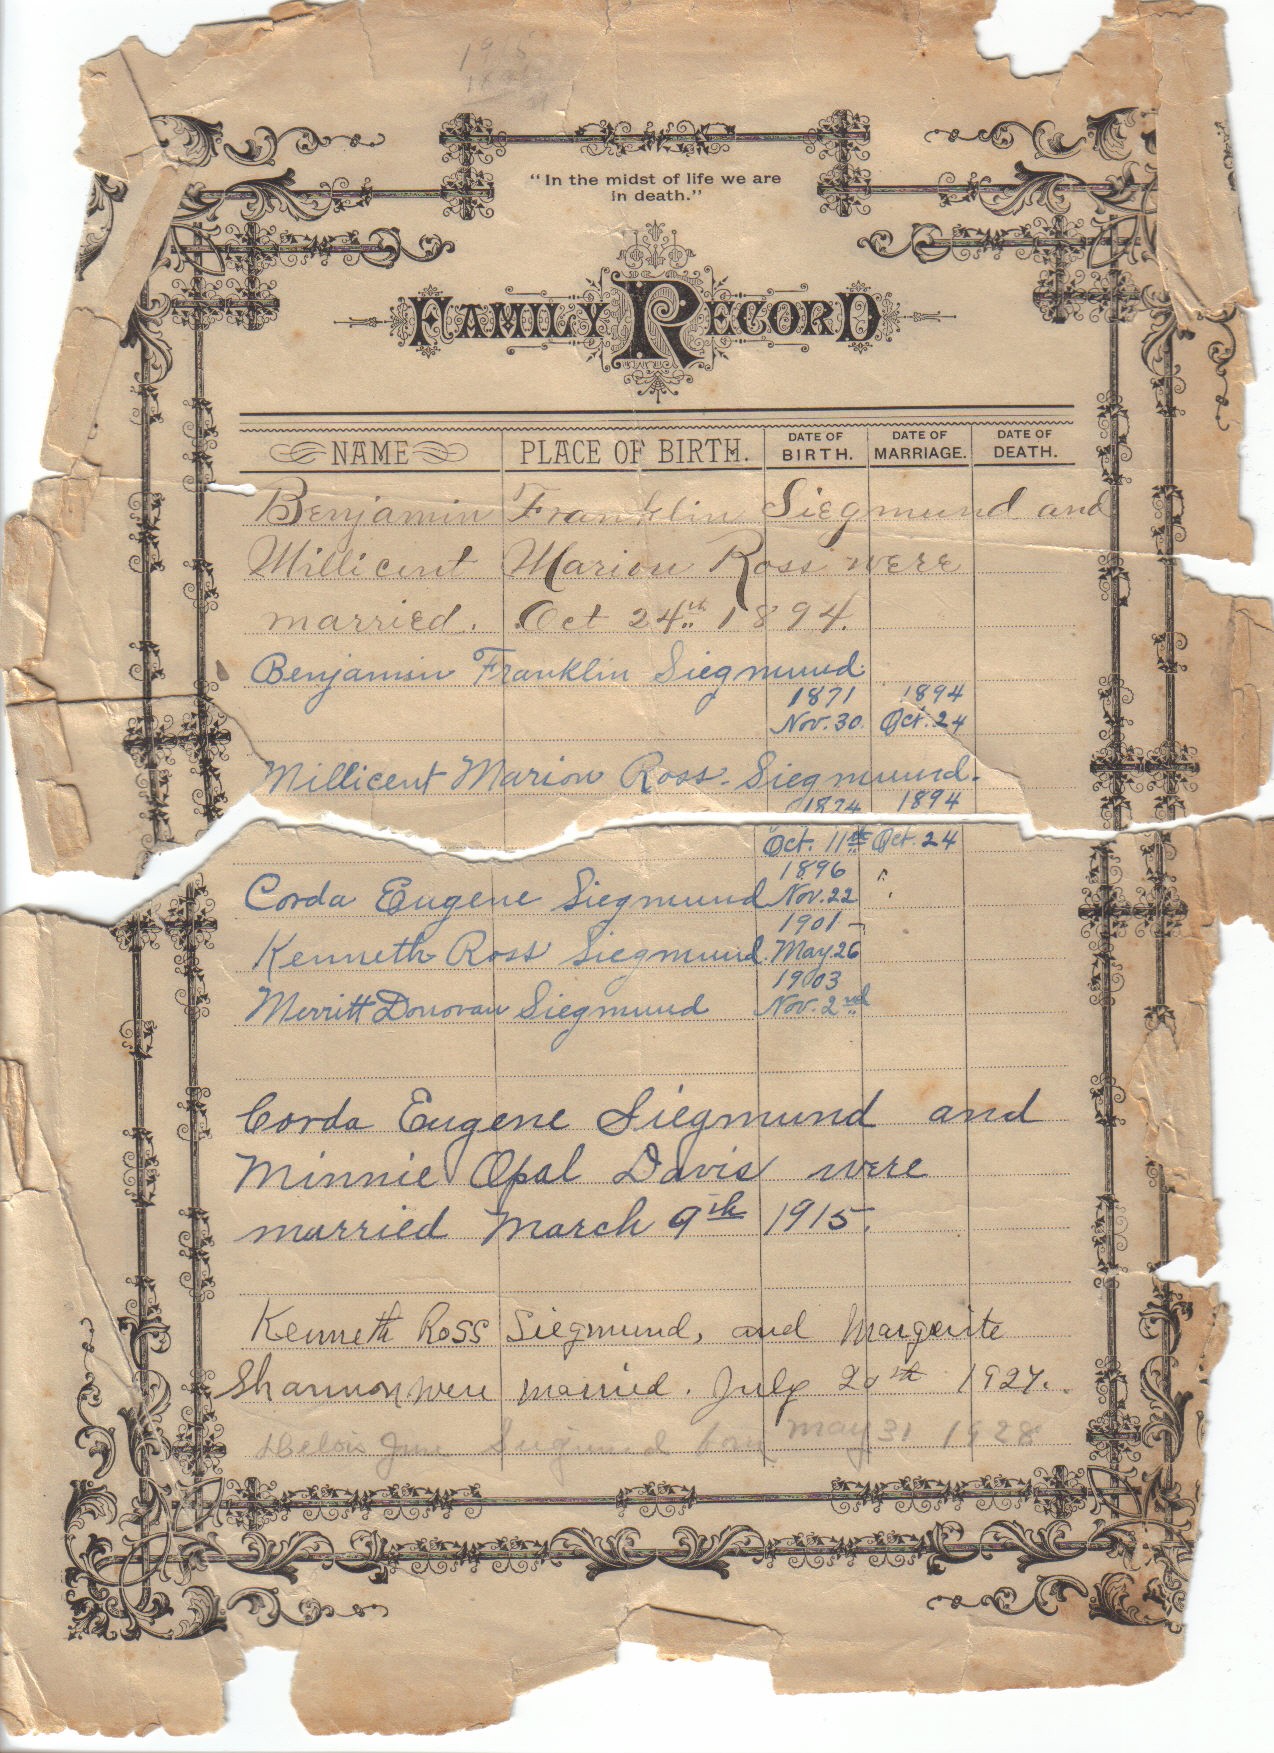 1915
"In the midst of life we are
in death."
FAMILY RECORD
NAME PLACE OF BIRTH. DATE OF BIRTH. DATE OF MARRIAGE. DATE OF DEATH.
Benjamin Franklin Siegmund and
Millicent Marion Ross were
married. Oct 24th 1894.
Benjamin Franklin Siegmund
1871 1894
Nov. 30 Oct. 24
Millicent Marion Ross-Siegmund.
1874 1894
Oct. 11th Oct. 24
1896
Corda Eugene Siegmund Nov. 22
1901
Kenneth Ross Siegmund May 26
1903
Merritt Donovan Siegmund Nov. 2nd
Corda Eugene Siegmund and
Minnie Opal Davis were
married March 9th 1915.
Kenneth Ross Siegmund, and Margerite
Shannon were married. July 20th 1927.
June Siegmund born may 31 1928